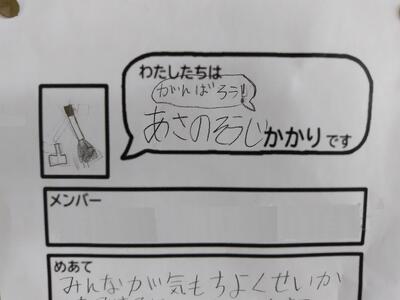 わたしたちは
がんばろう!!
あさのそうじかかりです
メンバー
めあて
みんなが気もちよくせいか